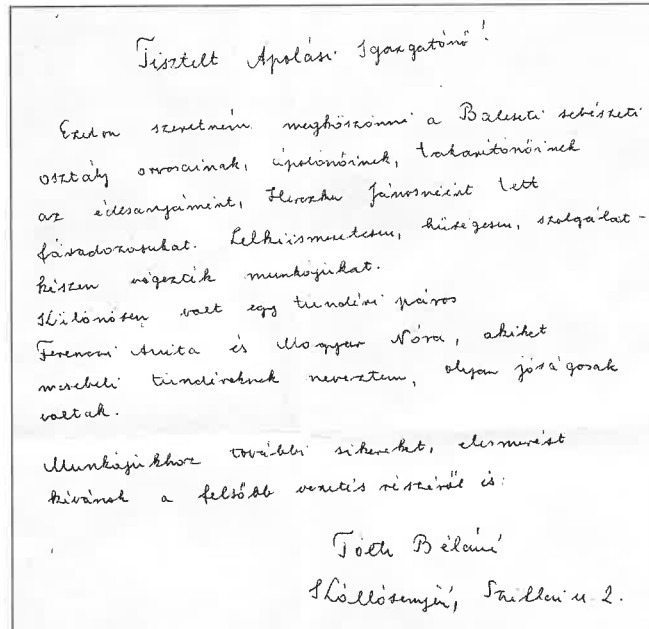 Tisztelt Ápolási Igazgatónő!
Ezúton szeretném megköszönni a Baleseti sebészeti
osztály orvosainak, ápolónőinek, takarítónőinek
az édesanyámért, Herczku Jánosnéért tett
fáradozásukat. Lelkiismeretesen, hűségesen, szolgálat-
készen végezték munkájukat.
Különösen volt egy tündéri páros
Ferenczi Anita és Magyar Nóra, akiket
mesebeli tündéreknek neveztem, olyan jóságosak
voltak.
Munkájukhoz további sikereket, elismerést
kívánok a felsőbb vezetés részéről is.
Tóth Béláné
u 2.